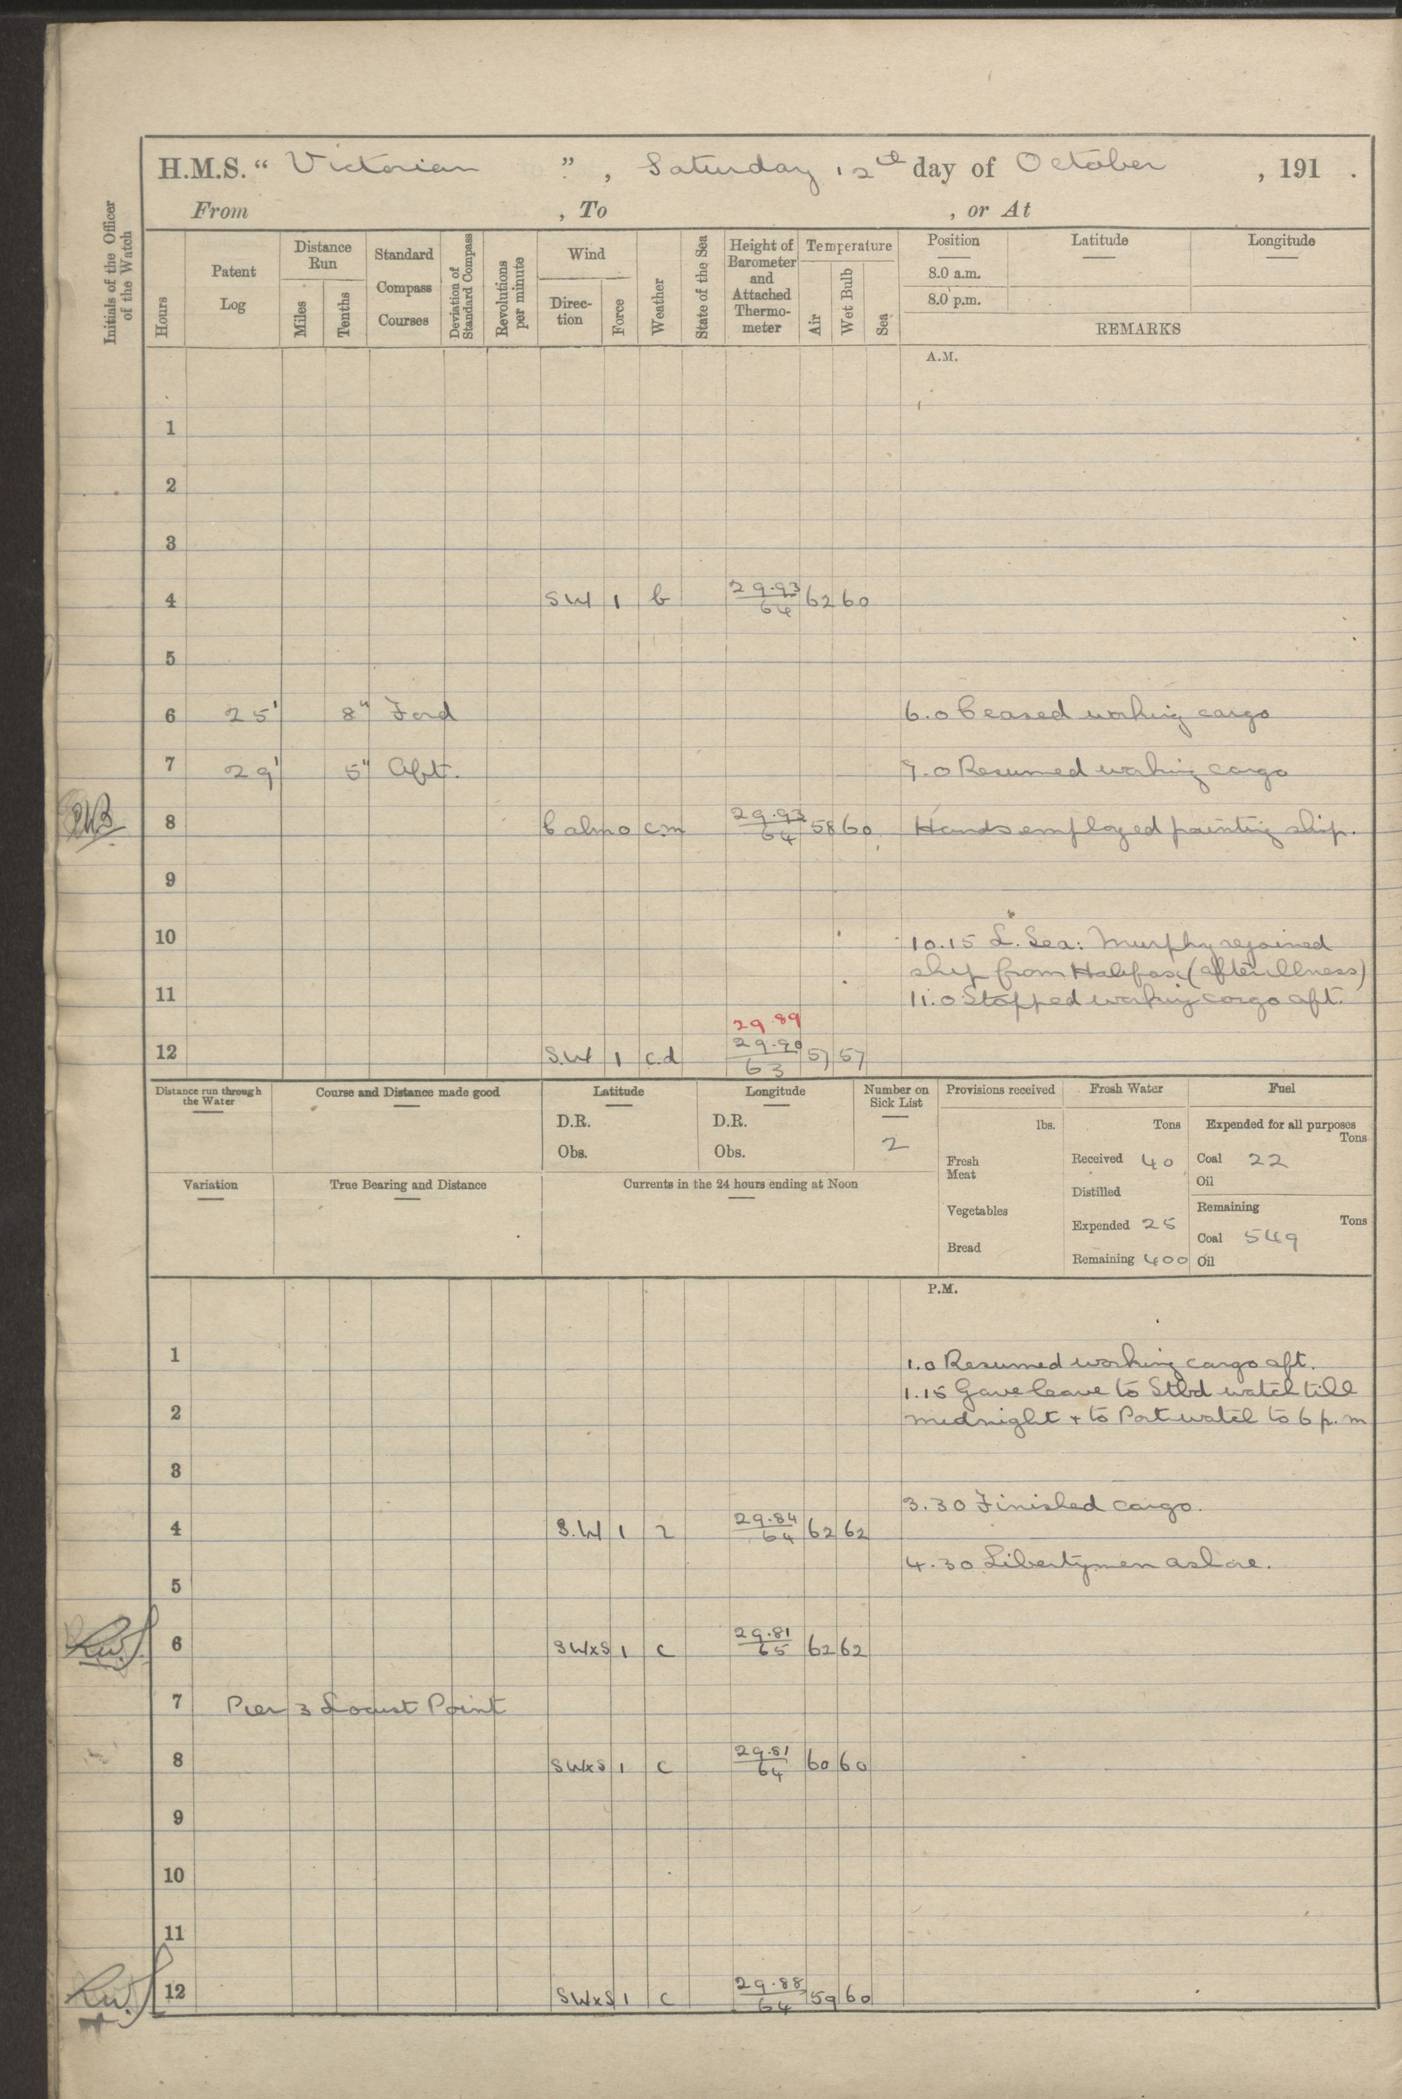 H.M.S. “ Victorian ” , Saturday 12th day of October , 191 .
From , To , or At
Initials of the Officer of the Watch
Hours
Patent Log
Distance Run
Miles
Tenths
Standard Compass Courses
Deviation of Standard Compass
Revolutions per minute
Wind
Direc- tion
Force
Weather
State of the Sea
Height of Barometer and Attached Thermo- meter
Temperature
Air
Wet Bulb
Sea
Position Latitude Longitude
8.0 a.m.
8.0 p.m.
REMARKS
A.M.
1
2
3
4 SW 1 b 29.93/64 62 60
5
6 25' 8" Ford 6.0 Ceased working cargo
7 29' 5" Aft. 7.0 Resumed working cargo
8 Calm 0 c.m 29.93/64 58 60 Hands employed painting ship.
9
10 10.15 L. Sea: Murphy rejoined
ship from Halifax (after illness)
11 11.0 Stopped working cargo aft.
29.89
12 S.W 1 c.d 29.90/63 57 57
Distance run through the Water
Course and Distance made good
Latitude
D.R.
Obs.
Longitude
D.R.
Obs.
Number on Sick List
2
Provisions received
lbs.
Fresh Meat
Vegetables
Bread
Fresh Water
Tons
Received 40
Distilled
Expended 25
Remaining 400
Fuel
Expended for all purposes
Tons
Coal 22
Oil
Remaining
Tons
Coal 549
Oil
Variation
True Bearing and Distance
Currents in the 24 hours ending at Noon
P.M.
1 1.0 Resumed working cargo aft.
1.15 Gave leave to Stbd watch till
2 midnight + to Port watch to 6 p.m
3
3.30 Finished cargo.
4 S.W 1 2 29.84/64 62 62
4.30 Libertymen ashore.
5
6 SWxS 1 c 29.81/65 62 62
7 Pier 3 Locust Point
8 SWxS 1 c 29.81/64 60 60
9
10
11
12 SWxS 1 c 29.88/64 59 60